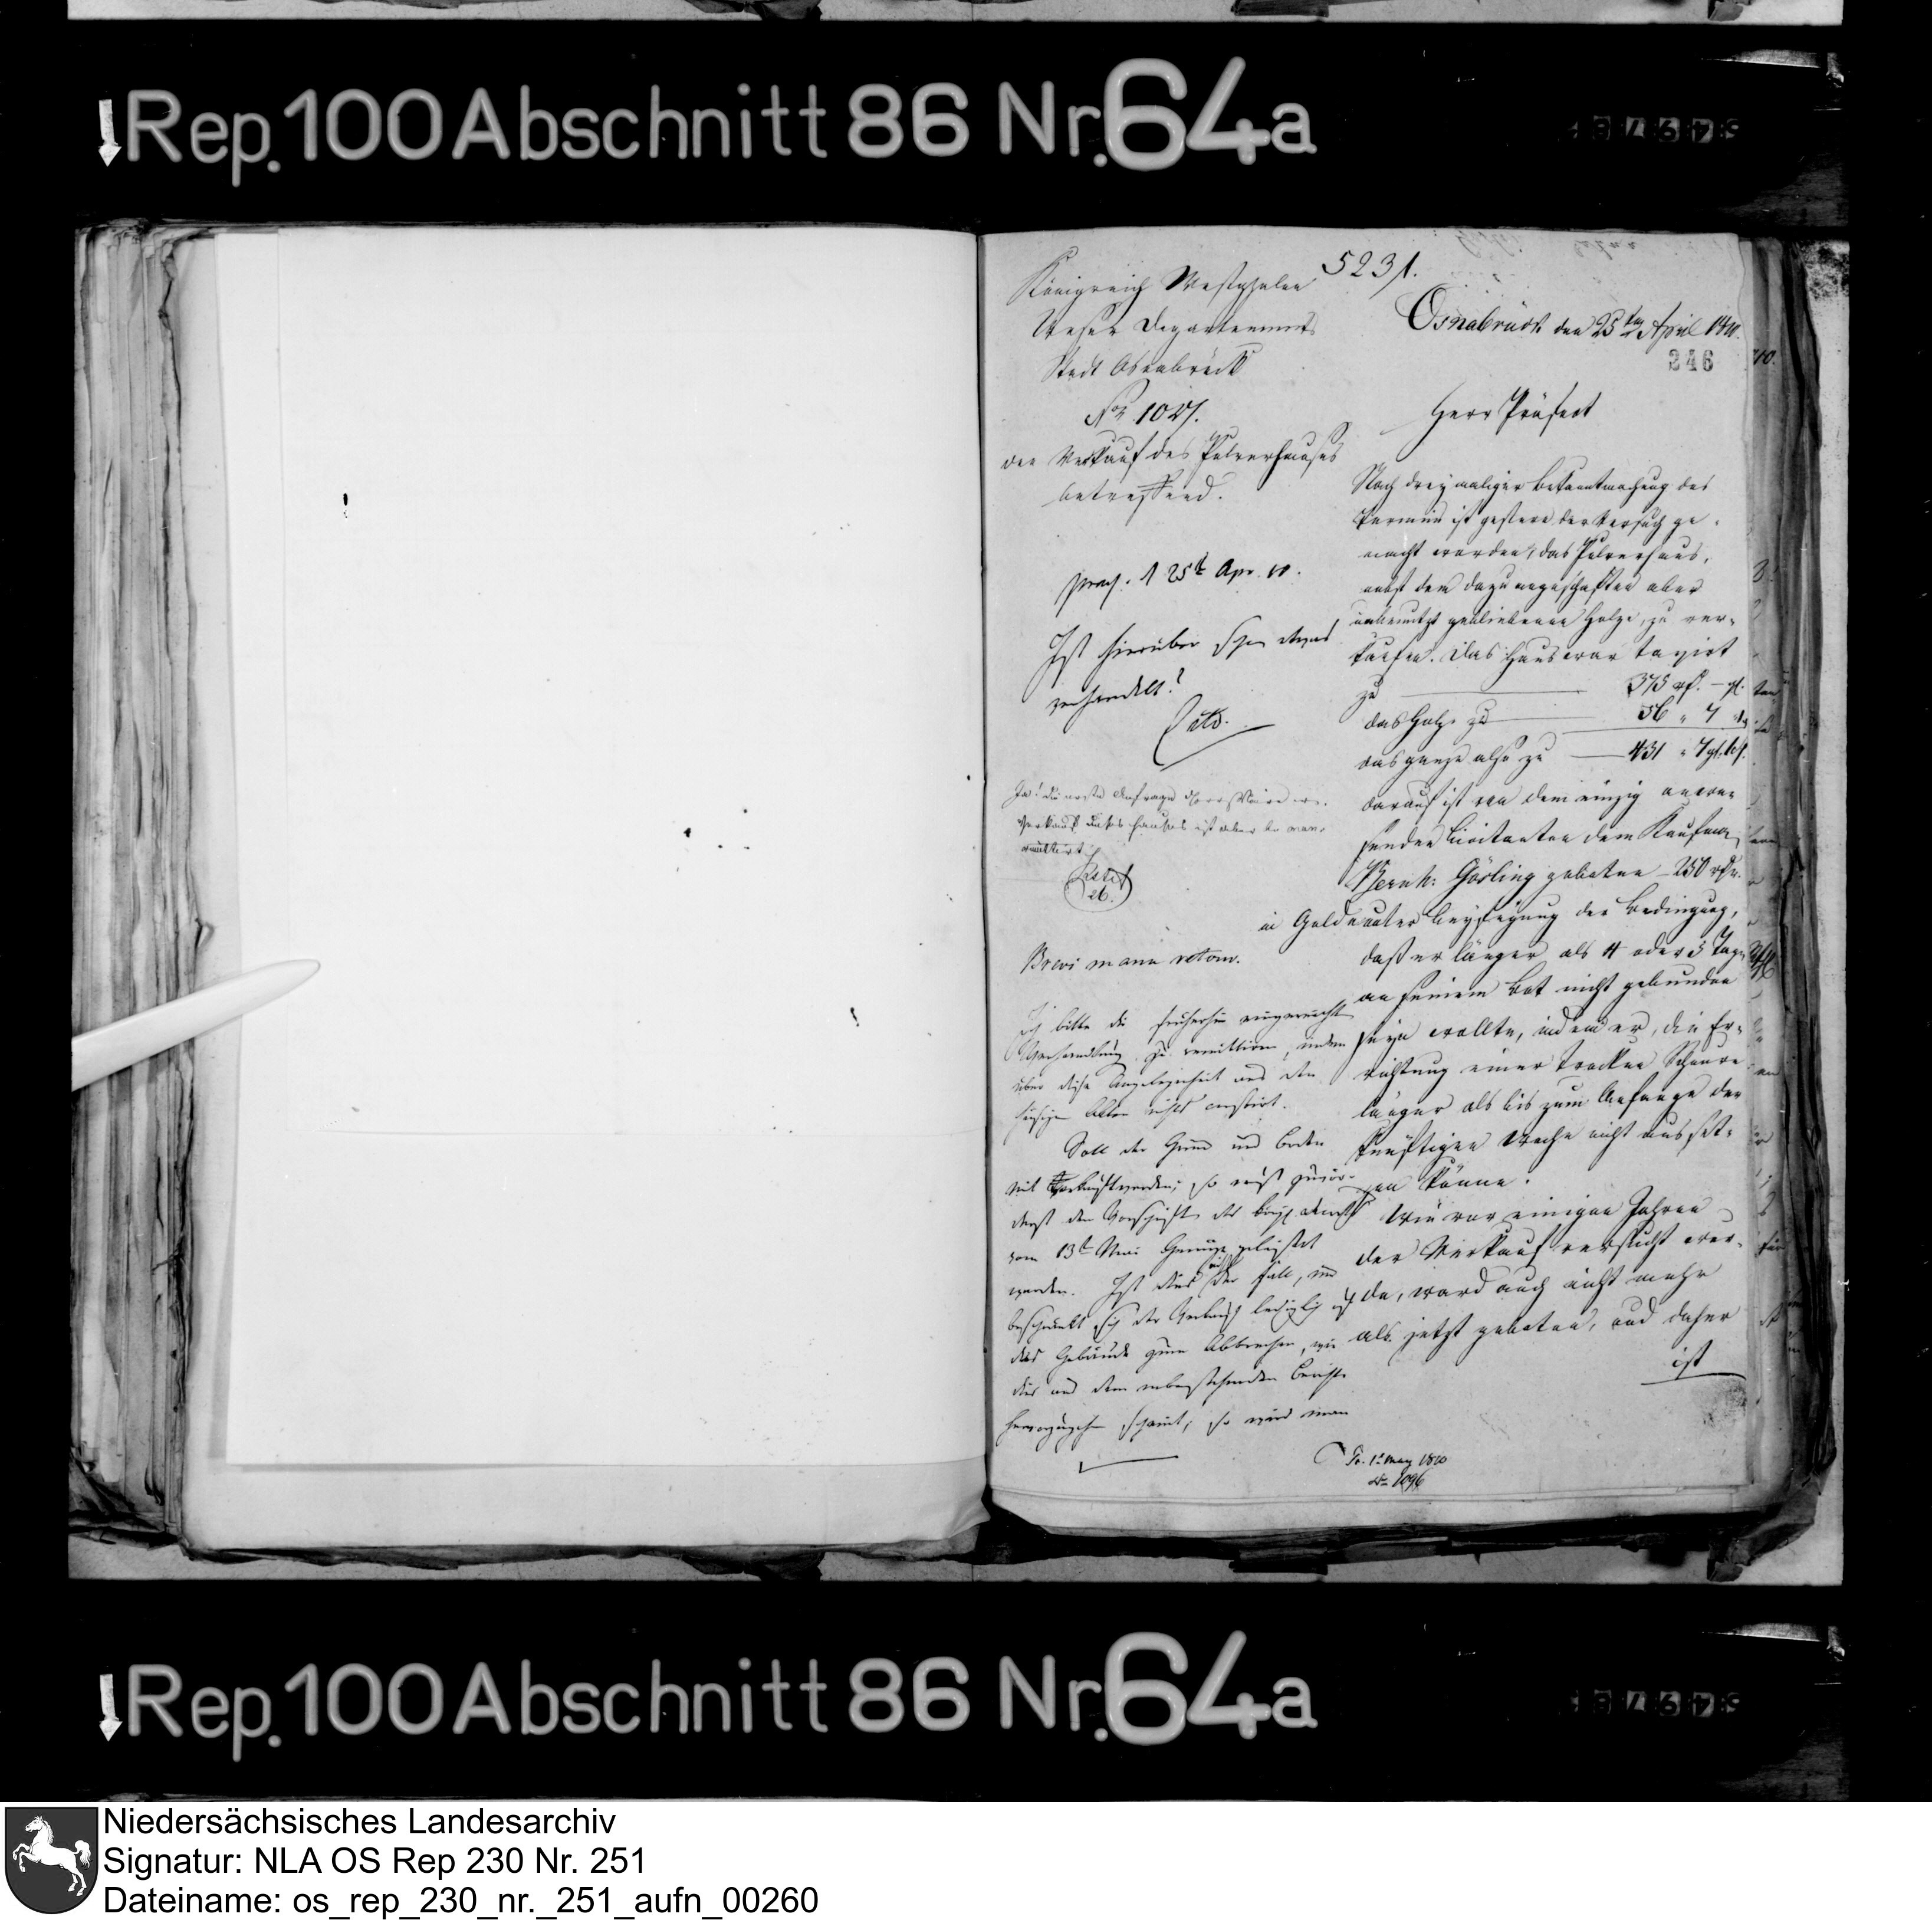 Rep. 100 Abschnitt 86 Nr. 64a
5231.
Königreich Westphalen
Weser Departement
Stadt Osnabrück
No 1027.
den Verkauf des Pulverhauses
betreffend.
Osnabrück den 25ten April 1810.
246
Herr Präfect
Nach dreymaliger Bekanntmachung des
Termins ist gestern der Versuch ge-
macht worden, das Pulverhaus,
nebst dem dazu angeschafften aber
unbenutzt gebliebenen Holze, zu ver-
kaufen. Das Haus war taxirt
zu 375 rt. – gl.
das Holz zu 56 " 7
das ganze also zu 431 " 7 gl.
darauf ist von dem einzig anwe-
senden Licitanten dem Kaufmann
Bernh: Gösling geboten – 250 rt.
in Golde unter Beyfügung der Bedingung,
daß er länger als 4 oder 5 Tage
an seinem Bot nicht gebunden
seyn wollte, indem er, die Er-
richtung einer trocknen Scheure
länger als bis zum Anfange der
künftigen Woche nicht ausset-
zen könne.
Wie vor einigen Jahren
der Verkauf versucht wur-
de, ward auch nicht mehr
als jetzt geboten, und daher
ist
praes. d 25t Apr. 10.
Ist hierüber schon etwas
verhandelt?
Ja! die erste Anfrage
Verkauf dieses Hauses ist aber
26.
Brevi manu retour.
Ich bitte die früherhin eingereichte
Verhandlung zu remittiren, indem
über diese Angelegenheit aus den
hiesigen Akten nichts constirt.
Soll der Grund und Boden
mit verkauft werden; so muß zuvör-
derst den Vorschriften des
vom 13t Genüge geleistet
werden. Ist dies nicht der Fall, und
beschränkt sich der Verkauf lediglich auf
das Gebäude zum Abbrechen, wie
dies aus dem nebenstehenden Berichte
hervorzugehen scheint, so wird man
Pr. 1t May 1810
No 1096
Rep. 100 Abschnitt 86 Nr. 64a
Niedersächsisches Landesarchiv
Signatur: NLA OS Rep 230 Nr. 251
Dateiname: os_rep_230_nr._251_aufn_00260